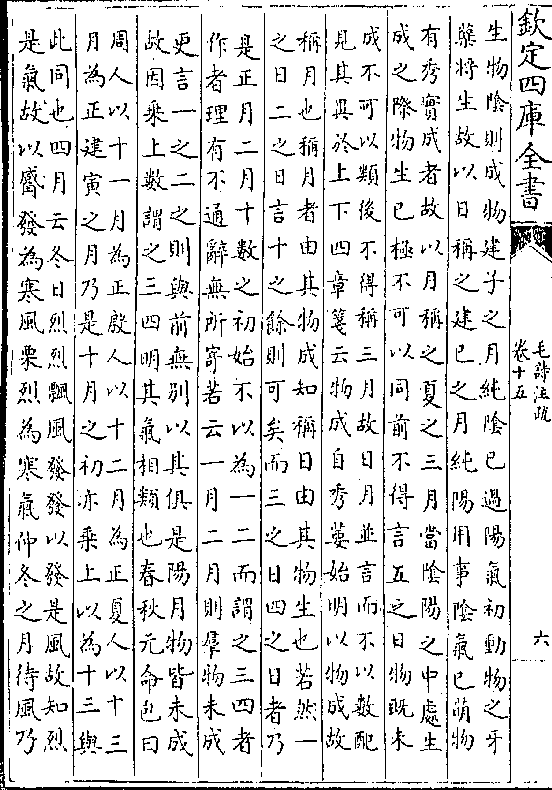 欽定四庫全書
毛詩注疏
卷十五
六
生物陰則成物建子之月純陰已過陽氣初動物之牙
蘖將生故以日稱之建巳之月純陽用事陰氣已萌物
有秀實成者故以月稱之夏之三月當陰陽之中處生
成之際物生已極不可以同前不得言五之日物既未
成不可以類後不得稱三月故日月並言而不以數配
見其異於上下四章箋云物成自秀葽始明以物成故
稱月也稱月者由其物成知稱日由其物生也若然一
之日二之日言十之餘則可矣而三之日四之日者乃
是正月二月十數之初始不以為一二而謂之三四者
作者理有不通辭無所寄若云一月二月則羣物未成
更言一之二之則與前無別以其俱是陽月物皆未成
故因乘上數謂之三四明其氣相類也春秋元命包曰
周人以十一月為正殷人以十二月為正夏人以十三
月為正建寅之月乃是十月之初亦乘上以為十三與
此同也四月云冬日烈烈飄風發發以發是風故知烈
是氣故以觱發為寒風栗烈為寒氣仲冬之月待風乃